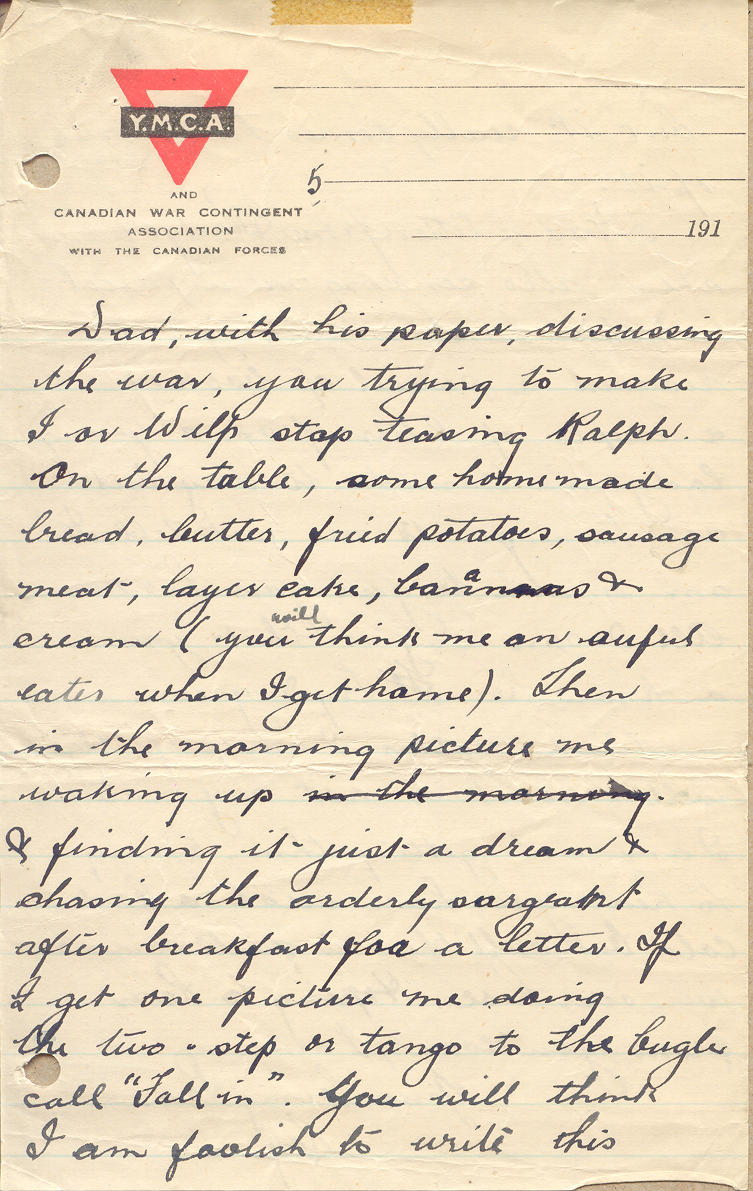 Y.M.C.A.
AND
CANADIAN WAR CONTINGENT
ASSOCIATION
WITH THE CANADIAN FORCES
5
191
Dad, with his paper, discussing
the war, you trying to make
I or Wilf stop teasing Ralph.
On the table, some homemade
bread, butter, fried potatoes, sausage
meat, layer cake, bananas &
cream (you will think me an awful
eater when I get home). Then
in the morning picture me
waking up in the morning.
& finding it just a dream &
chasing the orderly sargeant
after breakfast foa a letter. If
I get one picture me doing
the two-step or tango to the bugle
call "Fall in". You will think
I am foolish to write this